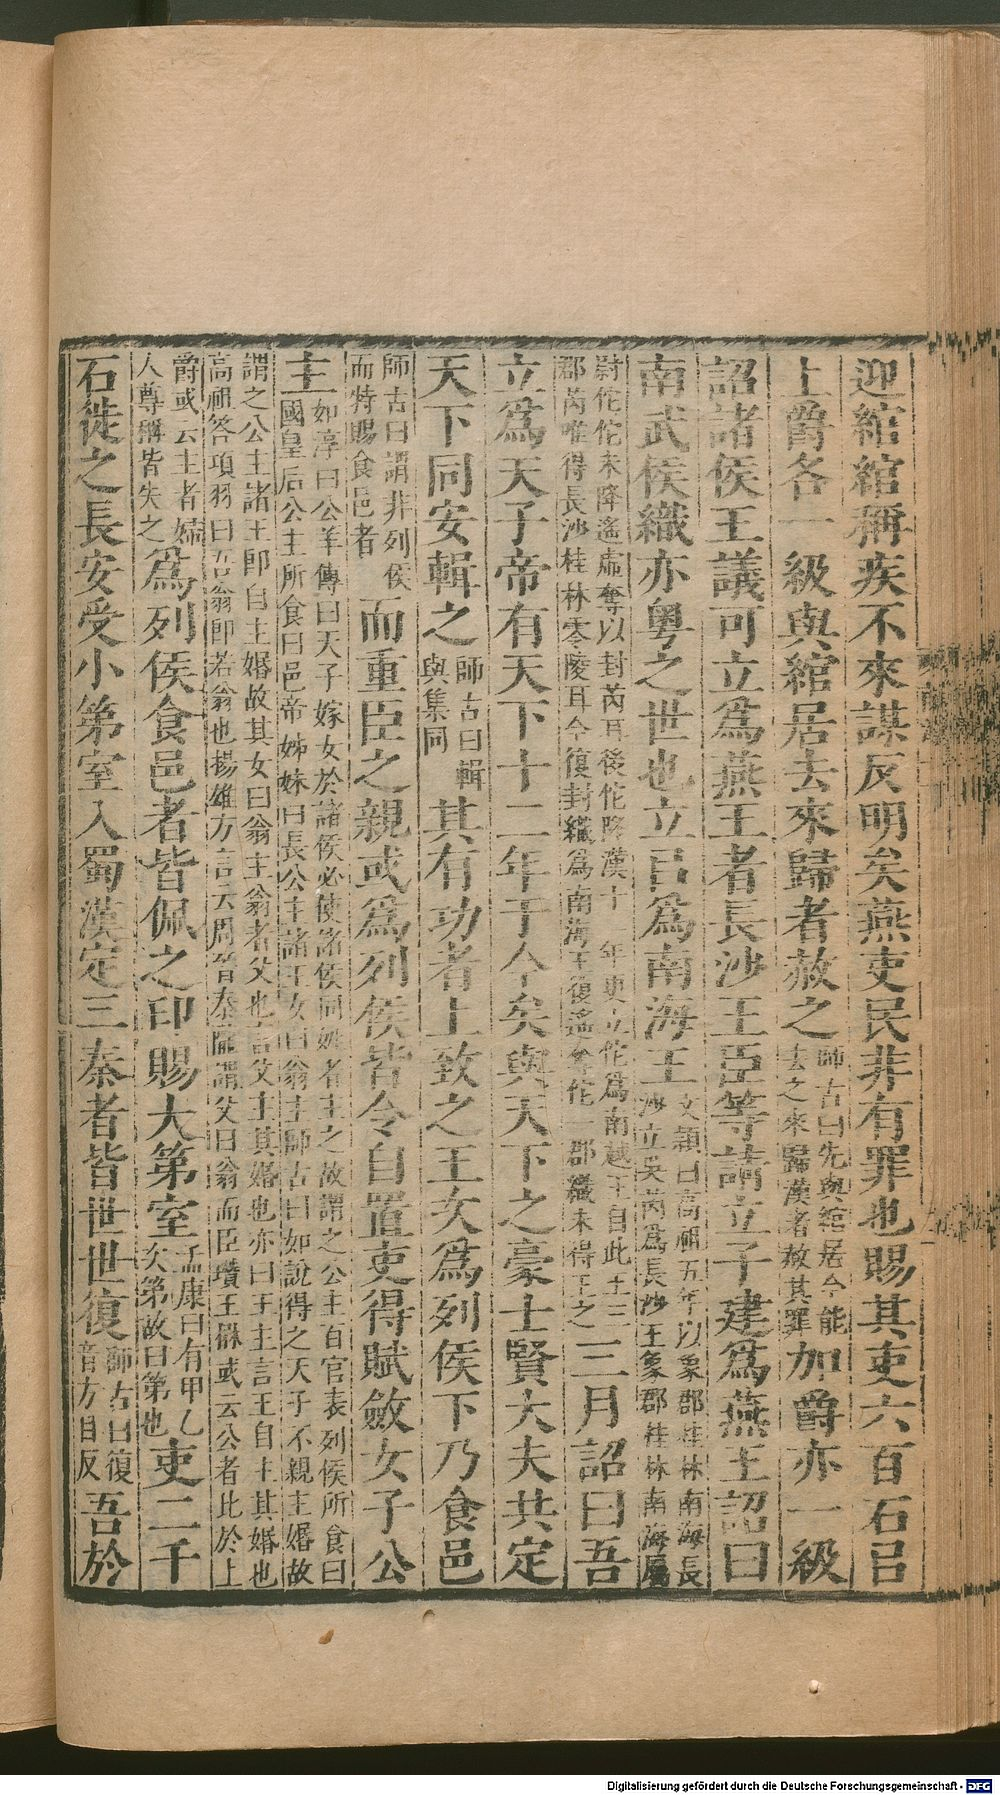 迎綰綰稱疾不來謀反明矣燕吏民非有罪也賜其吏六百石㠯
上爵各一級與綰居去來歸者赦之師古曰先與綰居今能去之來歸漢者赦其罪加爵亦一級
詔諸侯王議可立爲燕王者長沙王臣等請立子建爲燕王詔曰
南武侯織亦粤之世也立㠯爲南海王文穎曰高祖五年以象郡桂林南海長沙立吳芮爲長沙王象郡桂林南海屬
尉佗佗未降遙虛奪以封芮耳後佗降漢十一年更立佗爲南越王自此王三郡芮唯得長沙桂林零陵耳今復封織爲南海王復遙奪佗一郡織未得王之三月詔曰吾
立爲天子帝有天下十二年于今矣與天下之豪士賢大夫共定
天下同安輯之師古曰輯與集同其有功者上致之王次爲列侯下乃食邑
師古曰謂非列侯而特賜食邑者而重臣之親或爲列侯皆令自置吏得賦斂女子公
主如淳曰公羊傳曰天子嫁女於諸侯必使諸侯同姓者主之故謂之公主百官表列侯所食曰國皇后公主所食曰邑帝姊妹曰長公主諸王女曰翁主師古曰如說得之天子不親主婚故
謂之公主諸王卽自主婚故其女曰翁主翁者父也言父主其婚也亦曰王主言王自主其婚也高祖答項羽曰吾翁卽若翁也揚雄方言云周晉秦隴謂父曰翁而臣瓚王楙或云公者比於上
爵或云主者婦人尊稱皆失之爲列侯食邑者皆佩之印賜大第室孟康曰有甲乙次第故曰第也吏二千
石徙之長安受小第室入蜀漢定三秦者皆世世復師古曰復音方目反吾於
Digitalisierung gefördert durch die Deutsche Forschungsgemeinschaft - DFG